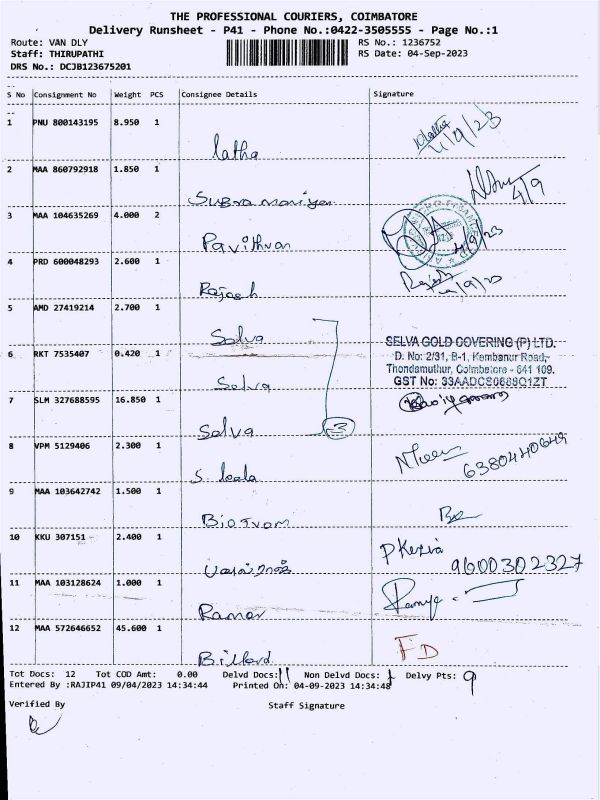 THE PROFESSIONAL COURIERS, COIMBATORE
Delivery Runsheet - P41 - Phone No.:0422-3505555 - Page No.:1
Route: VAN DLY RS No.: 1236752
Staff: THIRUPATHI RS Date: 04-Sep-2023
DRS No.: DCJB123675201
S No Consignment No Weight PCS Consignee Details Signature
1 PNU 800143195 8.950 1 latha 4/9/23
2 MAA 860792918 1.850 1 Subramaniyan 4/9
3 MAA 104635269 4.000 2 Pavithran 4/9/23
4 PRD 600048293 2.600 1 Rajesh Rajesh 4/9/23
5 AMD 27419214 2.700 1 Selva
SELVA GOLD COVERING (P) LTD.
6 RKT 7535407 0.420 1 Selva D. No: 2/31, B-1, Kembanur Road,
Thondamuthur, Coimbatore - 641 109.
GST No: 33AADCS0688Q1ZT
7 SLM 327688595 16.850 1 Selva 3
8 VPM 5129406 2.300 1 S. leela 6380440649
9 MAA 103642742 1.500 1
10 KKU 307151 2.400 1 P Kezia
9600302327
11 MAA 103128624 1.000 1 Raman Ramya
12 MAA 572646652 45.600 1 Billard FD
Tot Docs: 12 Tot COD Amt: 0.00 Delvd Docs: 11 Non Delvd Docs: 1 Delvy Pts: 9
Entered By :RAJIP41 09/04/2023 14:34:44 Printed On: 04-09-2023 14:34:48
Verified By Staff Signature